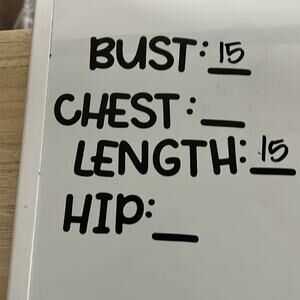 BUST: 15
CHEST: __
LENGTH: 15
HIP: __